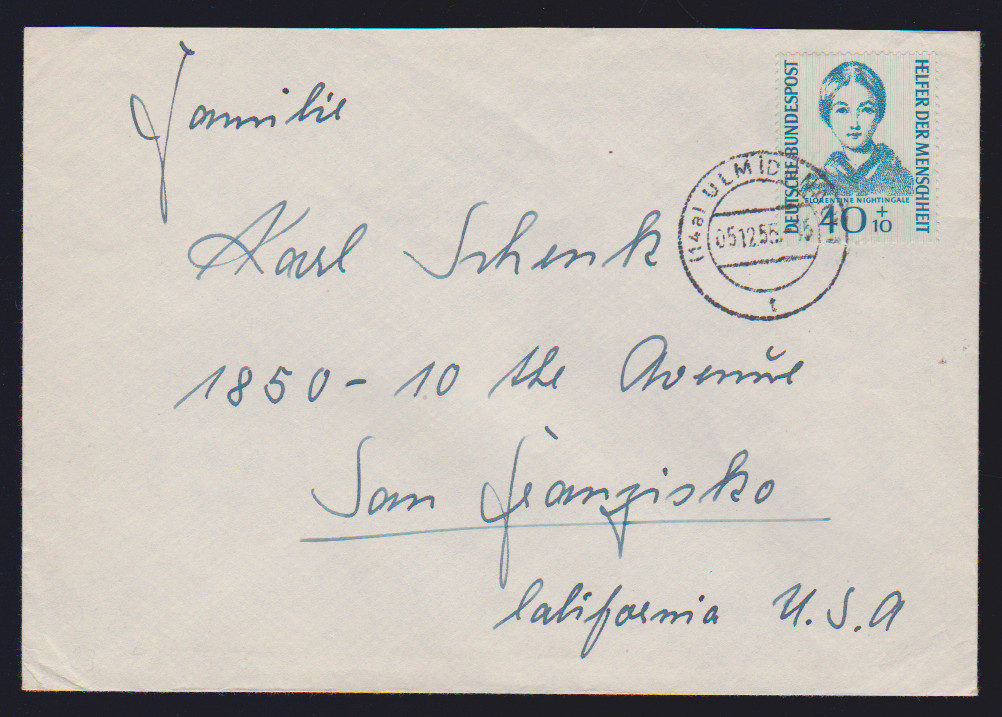 Familie
Karl Schenk
1850-10 the Avenue
San Franzisko
California U.S.A
DEUTSCHE BUNDESPOST
HELFER DER MENSCHHEIT
FLORENTINE NIGHTINGALE
40 + 10
(14a) ULM (DONAU)
05.12.55
t